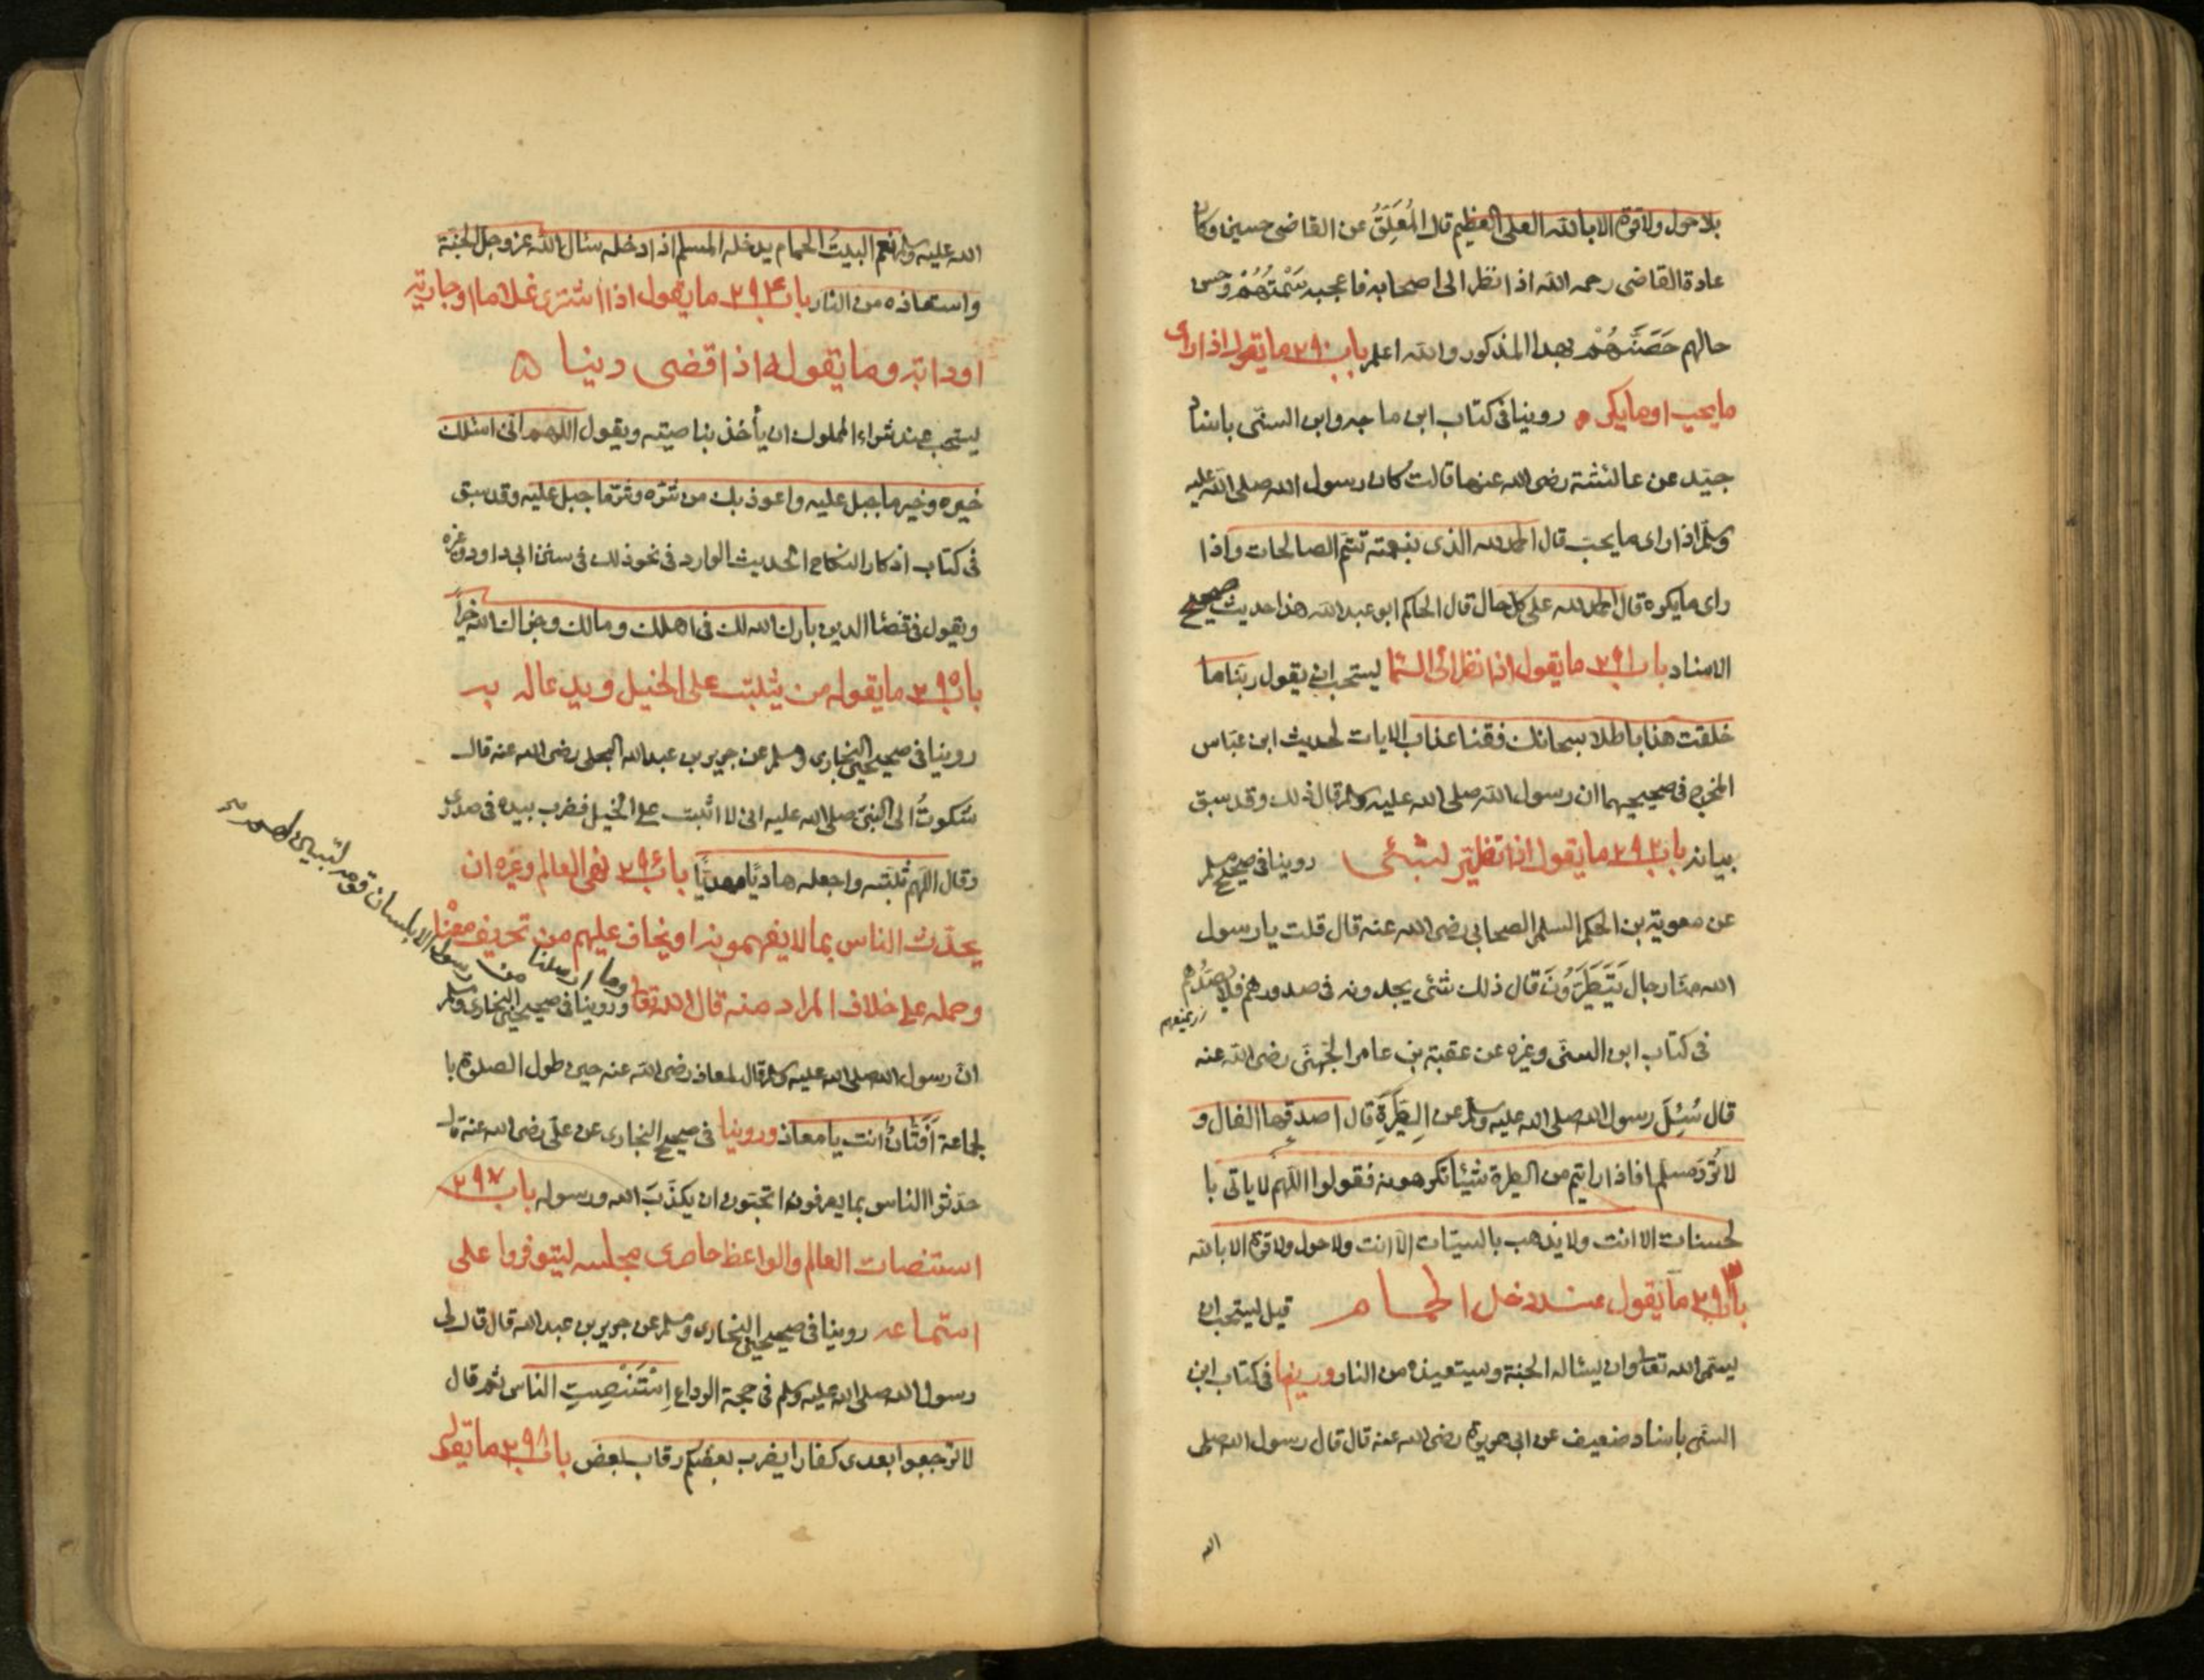 بلا حول ولا قوة الا بالله العلى العظيم قال المُعَلِّقُ عن القاضى حسين وكان
عادة القاضى رحمه الله اذا نظر الى اصحابه فاعجبه سَمْتُهُمْ وحسن
حالهم حَصَّنَهُمْ بهذا المذكور والله اعلم باب ٢٩٠ ما يقول اذا راى
ما يحب او ما يكره روينا فى كتاب ابن ماجه وابن السنى باسناد
جيّد عن عائشة رضى الله عنها قالت كان رسول الله صلى الله عليه
وسلم اذا راى ما يحب قال الحمد لله الذى بنعمته تتم الصالحات واذا
راى ما يكره قال الحمد لله على كل حال قال الحاكم ابو عبد الله هذا حديث صحيح
الاسناد باب ٢٩١ ما يقول اذا نظر الى السما يستحب ان يقول ربنا ما
خلقت هذا باطلا سبحانك فقنا عذاب الايات لحديث ابن عبّاس
المخرج فى صحيحيهما ان رسول الله صلى الله عليه وسلم قال ذلك وقد سبق
بيانه باب ٢٩٢ ما يقول اذا تطير لشئى روينا فى صحيح مسلم
عن معوية بن الحكم السلمى الصحابى رضى الله عنه قال قلت يا رسول
الله منّا رجال يَتَطَيَّرُونَ قال ذلك شئى يجدونه فى صدورهم فلا يصدّهم
فى كتاب ابن السنّى وغيره عن عقبة بن عامر الجهنى رضى الله عنه
قال سُئِلَ رسول الله صلى الله عليه وسلم عن الطِيَرَةِ قال اصدقها الفال و
لا تُرَدّ مسلما فاذا رايتم من الطيرة شيئا تكرهونه فقولوا اللهم لا ياتى با
لحسنات الا انت ولا يذهب بالسيّات الا انت ولا حول ولا قوة الا بالله
باب ٢٩٣ ما يقول عند دخل الحمام قيل يستحب ان
يسمى الله تعالى وان يسئاله الجنة ويستعيذه من النار وروينا فى كتاب ابن
السنى باسناد ضعيف عن ابى هريرة رضى الله عنه قال قال رسول الله صلى
الله
الله عليه وسلم نعم البيتُ الحمام يدخله المسلم اذا دخله سئال الله عز وجل الجنّة
واستعاذه من النار باب ٢٩٤ ما يقول اذا اشترى غلاما او جارية
او دابة وما يقوله اذا قضى دينا
يستحب عند شراء المملوك ان يأخذ بناصيته ويقول اللهم انى اسئلك
خيره وخير ما جبل عليه واعوذ بك من شرّه وشرّ ما جبل عليه وقد سبق
فى كتاب اذكار النكاح الحديث الوارد فى نحو ذلك فى سنن ابى داود وغيره
ويقول فى قضئا الدين بارك الله لك فى اهلك ومالك وجزاك الله خيراً
باب ٢٩٥ ما يقوله من يثبت على الخيل ويدعا له به
روينا فى صحيحى البخارى ومسلم عن جرير بن عبد الله البجلى رضى الله عنه قال
شكوتُ الى النبىّ صلى الله عليه انى لا اثبت على الخيل فضرب بيده فى صدرى
وقال اللهم ثبّته واجعله هاديًا مهديًّا باب ٢٩٦ نهى العالم وغيره ان
يحدّث الناس بما لا يفهمونه او يخاف عليهم من تحريف معناه
وحمله على خلاف المراد منه قال الله تعالى وروينا فى صحيحى البخارى ومسلم
وما ارسلنا من رسول الا بلسان قومه ليبين لهم
ان رسول الله صلى الله عليه وسلم قال لمعاذ رضى الله عنه حين طول الصلوة با
لجماعة أَفَتَّانٌ انت يا معاذ وروينا فى صحيح البخارى عن علىّ رضى الله عنه قال
حدّثوا الناس بما يعرفون اتحبّون ان يكذّبَ الله ورسوله باب ٢٩٧
استنصات العالم والواعظ حاضرى مجلسه ليتوفروا على
استماعه روينا فى صحيحى البخارى ومسلم عن جرير بن عبد الله قال قال لى
رسول الله صلى الله عليه وسلم فى حجة الوداع اِسْتَنْصِتِ الناس ثم قال
لا ترجعوا بعدى كفارا يضرب بعضكم رقاب بعض باب ٢٩٨ ما يقوله